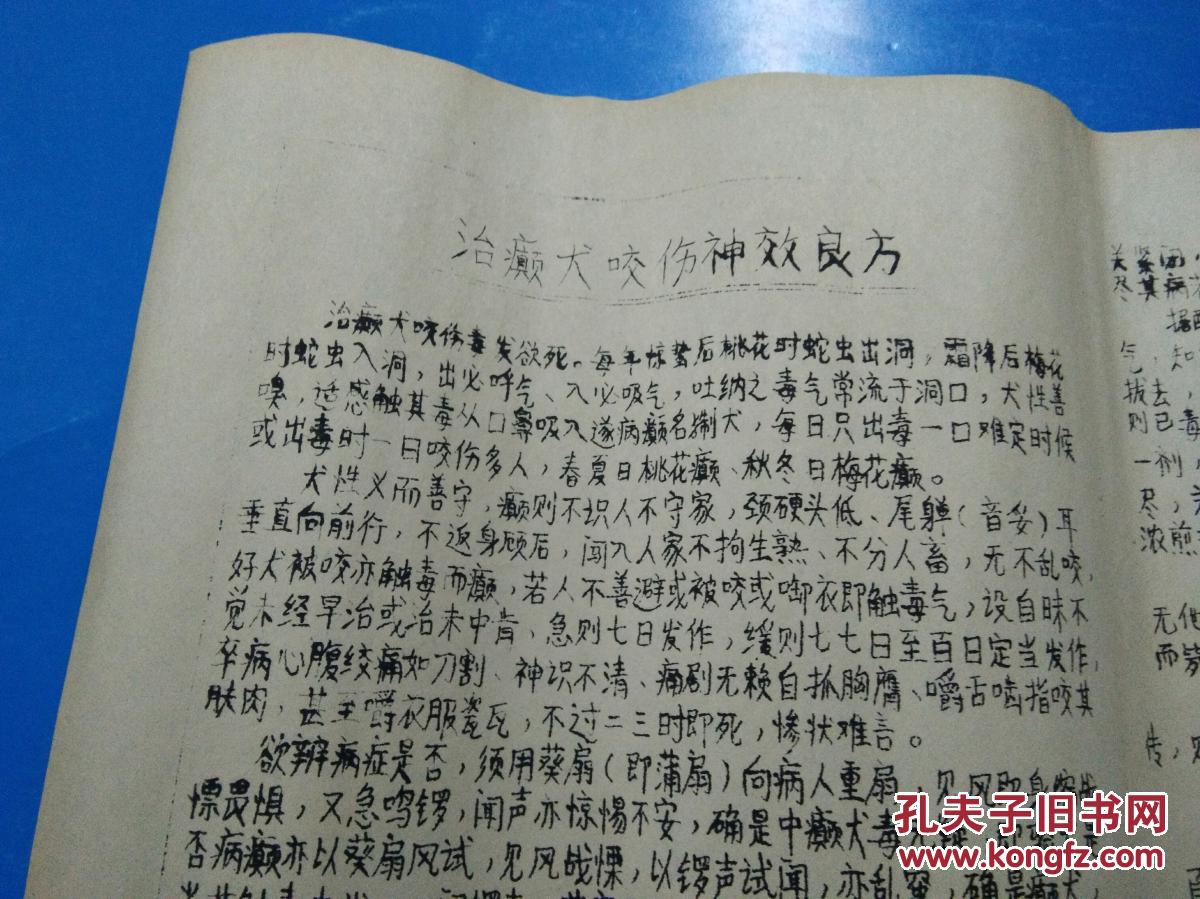 治癫犬咬伤神效良方
治癫犬咬伤毒发欲死。每年惊蛰后桃花时蛇虫出洞，霜降后梅花
时蛇虫入洞，出必呼气、入必吸气，吐纳之毒气常流于洞口，犬性善
嗅，适感触其毒从口鼻吸入遂病癫名猘犬，每日只出毒一口难定时候
或出毒时一日咬伤多人，春夏日桃花癫、秋冬日梅花癫。
犬性义而善守，癫则不识人不守家，颈硬头低、尾亸（音妥）耳
垂直向前行，不返身顾后，闯入人家不拘生熟、不分人畜，无不乱咬，
好犬被咬亦触毒而癫，若人不善避或被咬或啣衣即触毒气，设自昧不
觉未经早治或治未中肯，急则七日发作，缓则七七日至百日定当发作，
卒病心腹绞痛如刀割、神识不清、痛剧无赖自抓胸膺、嚼舌啮指咬其
肤肉，甚至嚼衣服瓷瓦，不过二三时即死，惨状难言。
欲辨病症是否，须用葵扇（即蒲扇）向病人重扇，见风即身
慄畏惧，又急鸣锣，闻声亦惊惕不安，确是中癫犬毒
否病癫亦以葵扇风试，见风战慄，以锣声试闻，亦乱窜，确是癫犬，
关紧闭
尽其病
气，知
拔去，
则已毒
一剂
尽，
浓煎
无他
而皆
传，
孔夫子旧书网
www.kongfz.com